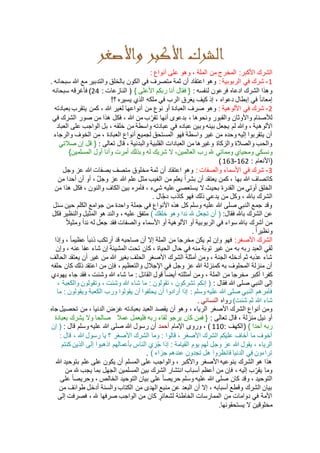 الشرك الأكبر والأصغر
الشرك الأكبر: المخرج من الملة ، وهو على أنواع :
1- شرك في الربوبية : وهو اعتقاد أن ثمة متصرف في الكون بالخلق والتدبير مع الله سبحانه .
وهذا الشرك ادعاه فرعون لنفسه : { فقال أنا ربكم الأعلى } ( النازعات : 24) فأغرقه سبحانه
إمعاناً في إبطال دعواه ، إذ كيف يغرق الرب في ملكه الذي يسيره ؟!
2- شرك في الألوهية : وهو صرف العبادة أو نوع من أنواعها لغير الله ، كمن يتقرب بعبادته
للأصنام والأوثان والقبور ونحوها ، بدعوى أنها تقرّب من الله ، فكل هذا من صور الشرك في
الألوهية ، والله لم يجعل بينه وبين عباده في عبادته واسطة من خلقه ، بل الواجب على العباد
أن يتقربوا إليه وحده من غير واسطة فهو المستحق لجميع أنواع العبادة ، من الخوف والرجاء
والحب والصلاة والزكاة وغيرها من العبادات القلبية والبدنية ، قال تعالى : { قل إن صلاتي
ونسكي ومحياي ومماتي لله رب العالمين، لا شريك له وبذلك أمرت وأنا أول المسلمين}
(الأنعام : 162-163 )
3- شرك في الأسماء والصفات : وهو اعتقاد أن ثمة مخلوق متصف بصفات الله عز وجل
كاتصاف الله بها ، كمن يعتقد أن بشراً يعلم من الغيب مثل علم الله عز وجلّ ، أو أن أحدا من
الخلق أوتي من القدرة بحيث لا يستعصي عليه شيء ، فأمره بين الكاف والنون ، فكل هذا من
الشرك بالله ، وكل من يدعي ذلك فهو كاذب دجّال .
وقد جمع النبي صلى الله عليه وسلم كل هذه الأنواع في جملة واحدة من جوامع الكلم حين سئل
عن الشرك بالله فقال: ( أن تجعل لله ندا وهو خلقك ) متفق عليه ، والند هو المثيل والنظير فكل
من أشرك بالله سواء في الربوبية أو الألوهية أو الأسماء والصفات فقد جعل له نداً ومثيلاً
ونظيراً .
الشرك الأصغر : فهو وإن لم يكن مخرجا من الملة إلا أن صاحبه قد أرتكب ذنباً عظيماً ، وإذا
لقي العبد ربه به من غير توبة منه في حال الحياة ، كان تحت المشيئة إن شاء عفا عنه ، وإن
شاء عذبه ثم أدخله الجنة ، ومن أمثلة الشرك الأصغر الحلف بغير الله من غير أن يعتقد الحالف
أن منزلة المحلوف به كمنزلة الله عز وجل في الإجلال والتعظيم ، فإن من اعتقد ذلك كان حلفه
كفرا أكبر مخرجا من الملة ، ومن أمثلته أيضاً قول القائل : ما شاء الله وشئت ، فقد جاء يهودي
إلى النبي صلى الله فقال : ( إنكم تشركون ، تقولون : ما شاء الله وشئت ، وتقولون والكعبة ،
فأمرهم النبي صلى الله عليه وسلم : إذا أرادوا أن يحلفوا أن يقولوا ورب الكعبة ويقولون : ما
شاء الله ثم شئت) رواه النسائي .
ومن أنواع الشرك الأصغر الرياء ، وهو أن يقصد العبد بعبادته عرض الدنيا ، من تحصيل جاه
أو نيل منزلة ، قال تعالى : { فمن كان يرجو لقاء ربه فليعمل عملا صالحا ولا يشرك بعبادة
ربه أحدا } (الكهف :110 ) ، وروى الإمام أحمد أن رسول الله صلى الله عليه وسلم قال : ( إن
أخوف ما أخاف عليكم الشرك الأصغر ، قالوا : وما الشرك الأصغر ؟ يا رسول الله ، قال :
الرياء ، يقول الله عز وجل لهم يوم القيامة : إذا جزي الناس بأعمالهم اذهبوا إلى الذين كنتم
تراءون في الدنيا فانظروا هل تجدون عندهم جزاء ) .
هذا هو الشرك بنوعيه الأصغر والأكبر ، والواجب على المسلم أن يكون على علم بتوحيد الله
وما يقرّب إليه ، فإن من أعظم أسباب انتشار الشرك بين المسلمين الجهل بما يجب لله من
التوحيد ، وقد كان صلى الله عليه وسلم حريصاً على بيان التوحيد الخالص ، وحريصاً على
بيان الشرك وقطع أسبابه ، إلا أن البعد عن منبع الهدى من الكتاب والسنة أدخل طوائف من
الأمة في دوامات من الممارسات الخاطئة لشعائرٍ كان من الواجب صرفها لله ، فصرفت إلى
مخلوقين لا يستحقونها.